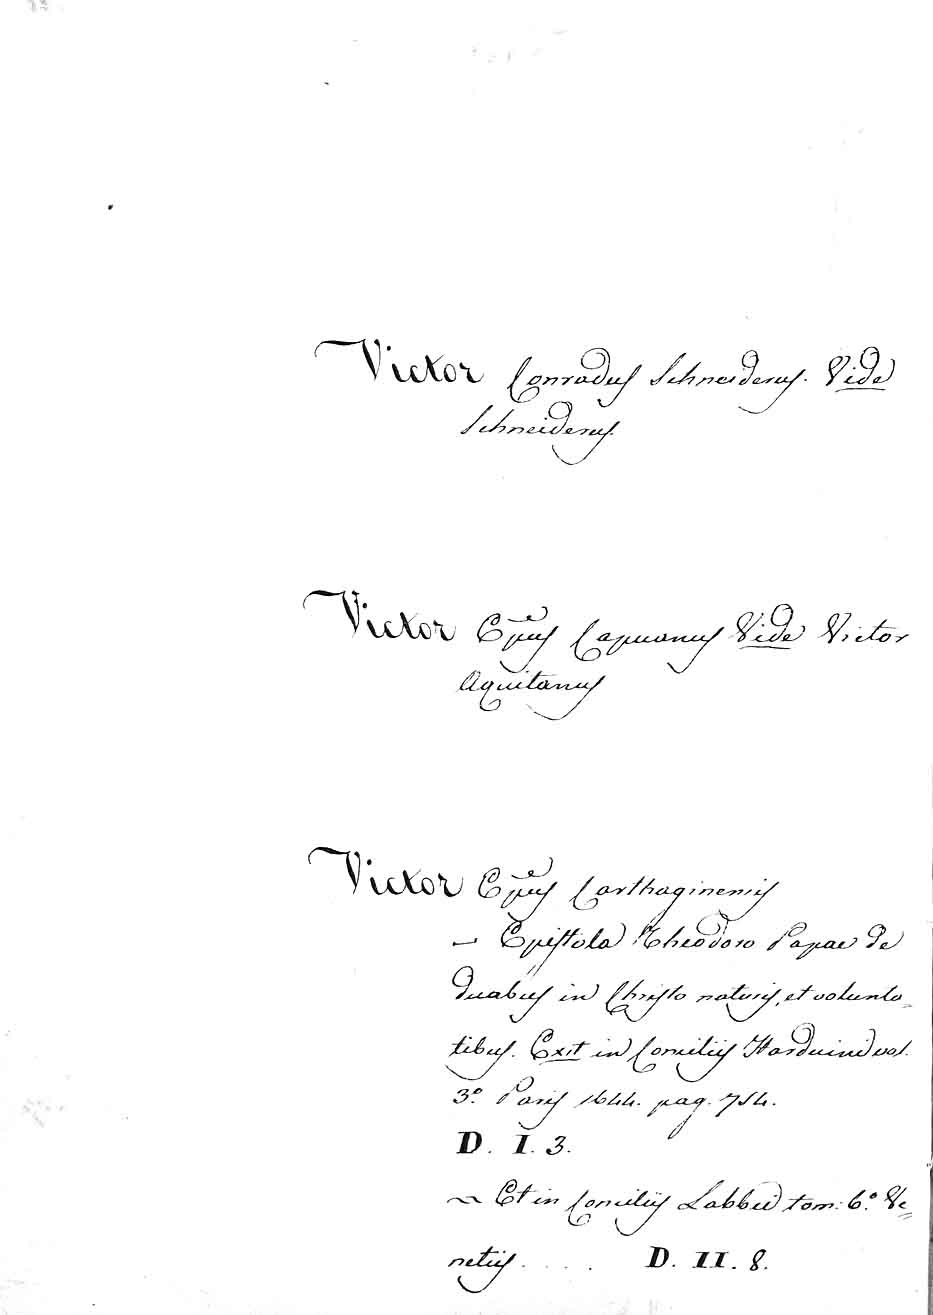 Victor Conradus Schneiderus. Vide
Schneiderus.
Victor Epūs Capuanus Vide Victor
Aquitanus
Victor Epūs Carthaginensis
– Epistola Theodoro Papae De
duabus in Christo naturis, et volunta=
tibus. Exit in Conciliis Harduini vol.
3º Paris 1644. pag. 754.
D. I. 3.
~ Et in Conciliis Labbei tom. 6.º Ve=
netiis . . . . D. II. 8.